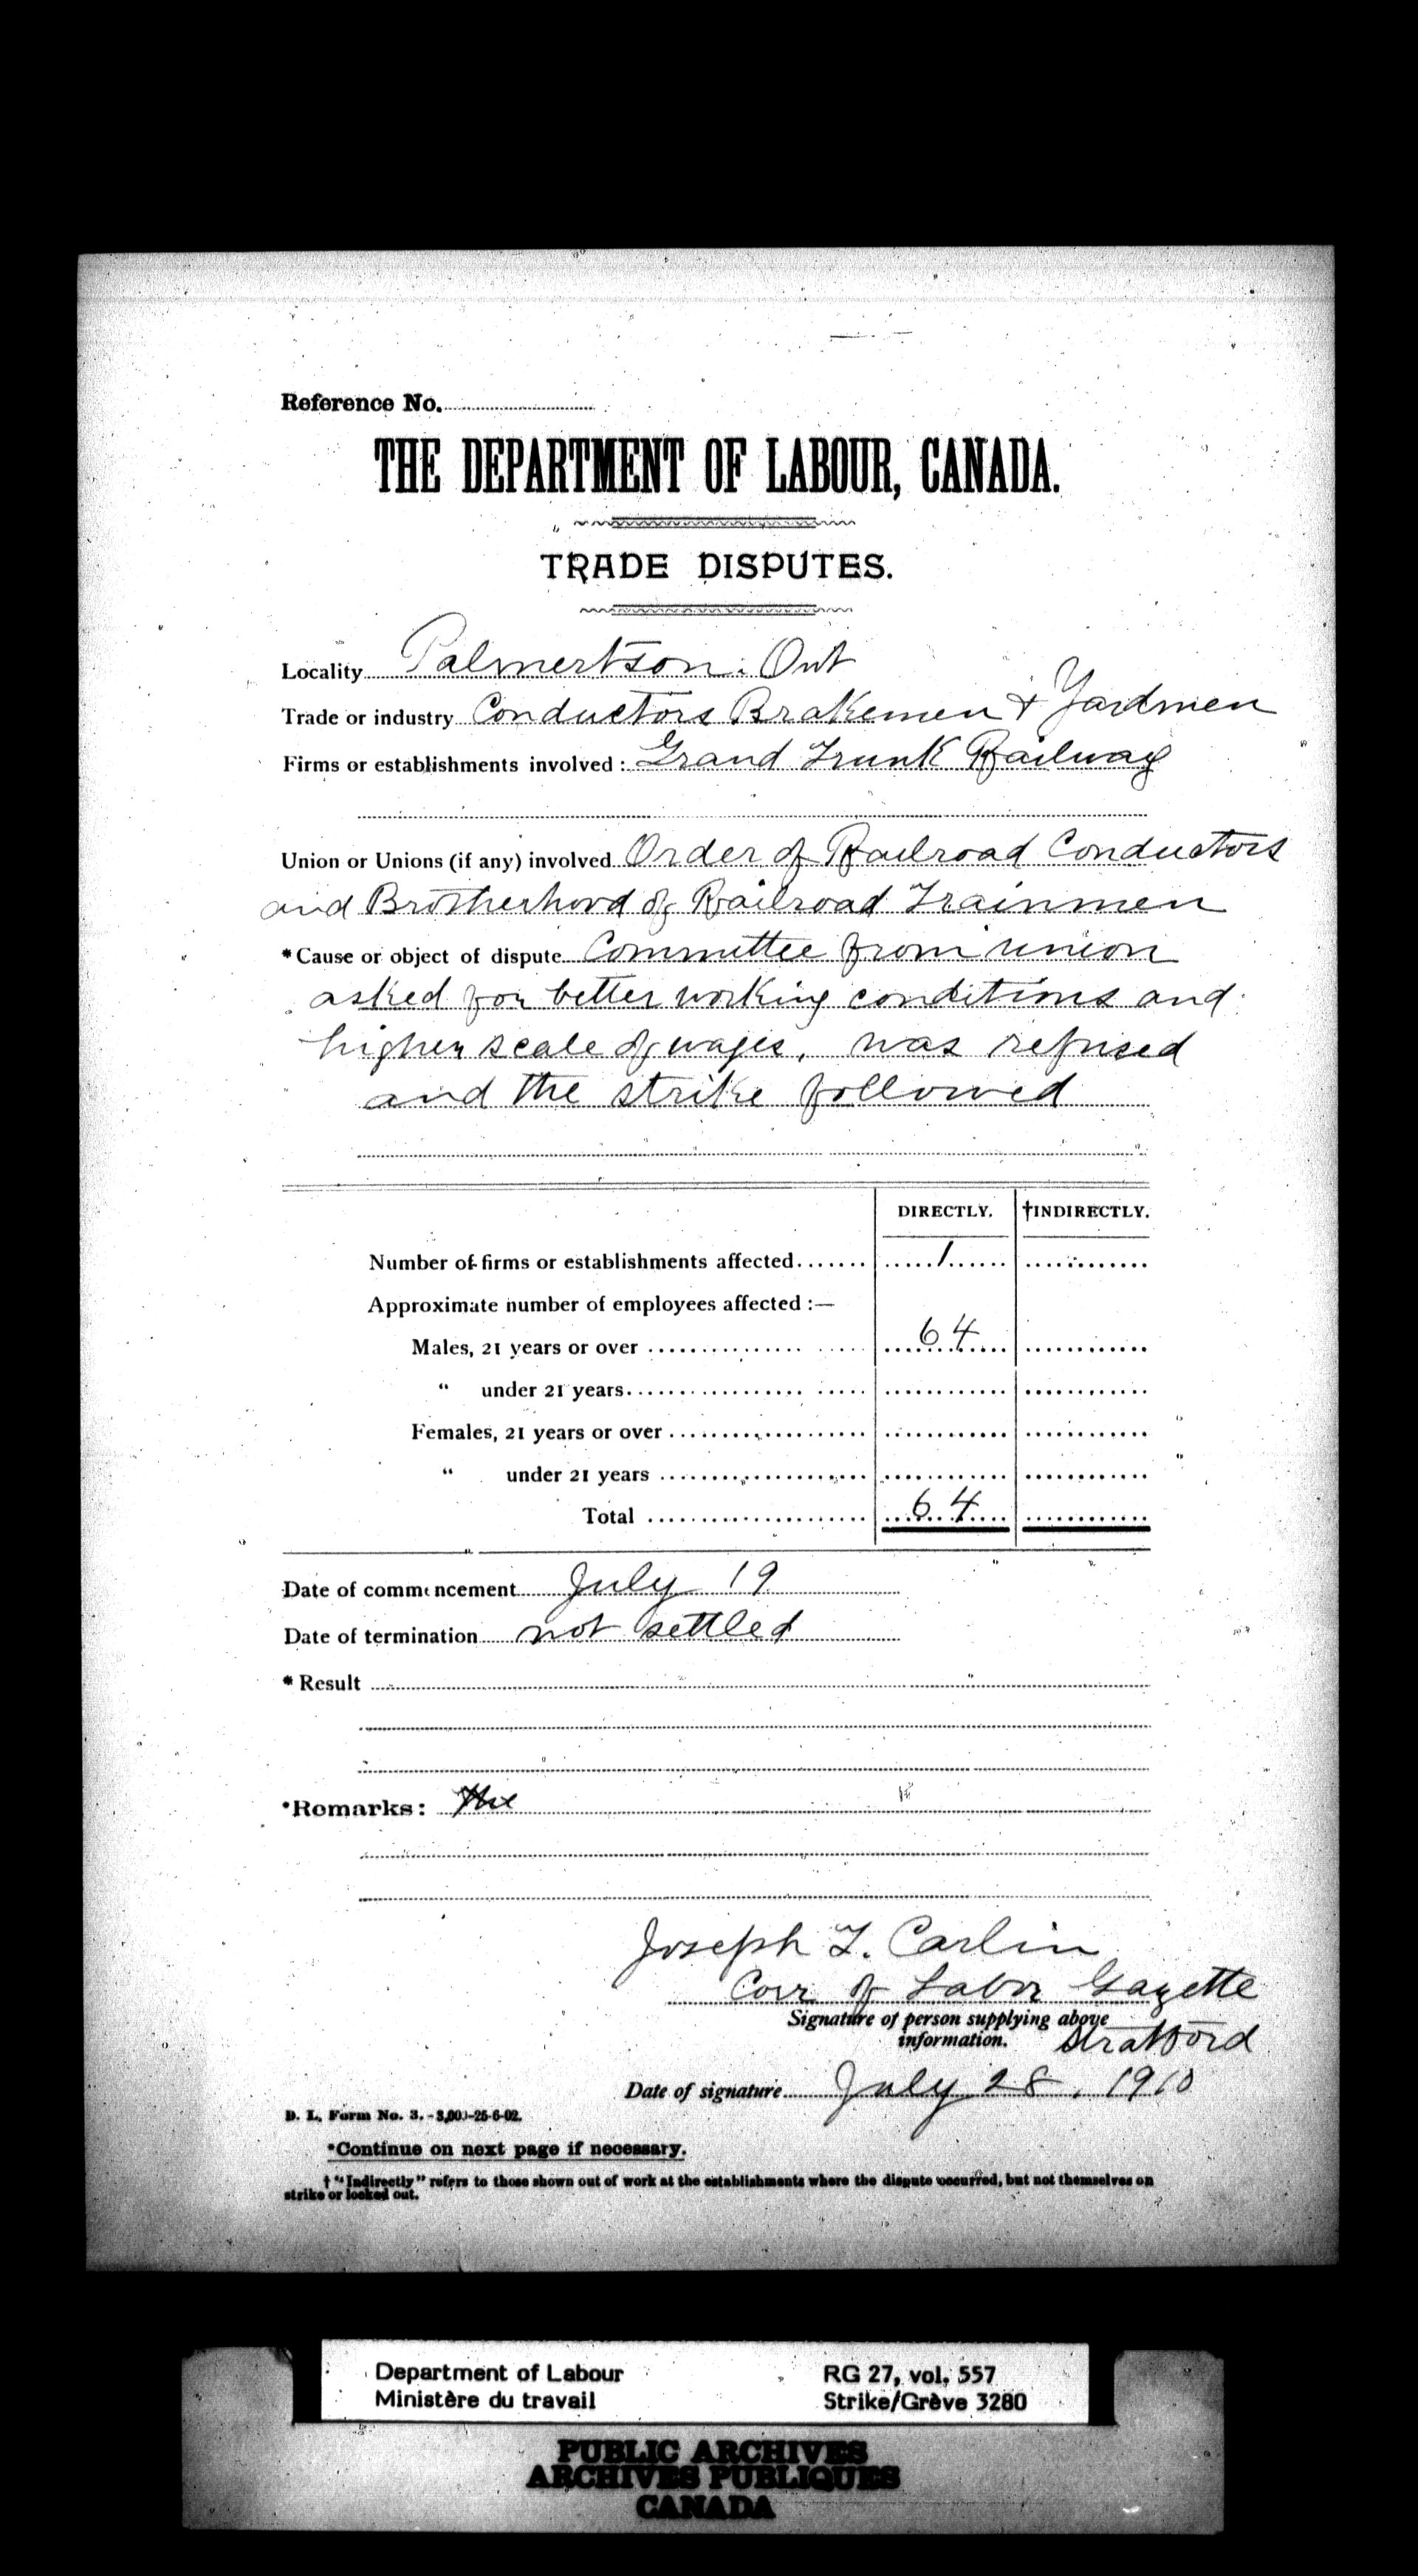 Reference No.
THE DEPARTMENT OF LABOUR, CANADA.
TRADE DISPUTES.
Locality Palmertson. Ont
Trade or industry Conductors Brakemen & Yardmen
Firms or establishments involved : Grand Trunk Railway
Union or Unions (if any) involved Order of Railroad Conductors
and Brotherhood of Railroad Trainmen
*Cause or object of dispute Committee from union
asked for better working conditions and
higher scale of wages, was refused
and the strike followed
DIRECTLY. †INDIRECTLY.
Number of firms or establishments affected 1
Approximate number of employees affected :—
Males, 21 years or over 64
“ under 21 years
Females, 21 years or over
“ under 21 years
Total 64
Date of commencement July 19
Date of termination not settled
* Result
*Remarks: The
Joseph T. Carlin
Corr of Labor Gazette
Signature of person supplying above
information. Stratford
Date of signature July 28, 1910
D. L. Form No. 3. -3,000-25-6-02.
*Continue on next page if necessary.
† “Indirectly” refers to those shown out of work at the establishments where the dispute occurred, but not themselves on
strike or locked out.
Department of Labour RG 27, vol. 557
Ministère du travail Strike/Grève 3280
PUBLIC ARCHIVES
ARCHIVES PUBLIQUES
CANADA